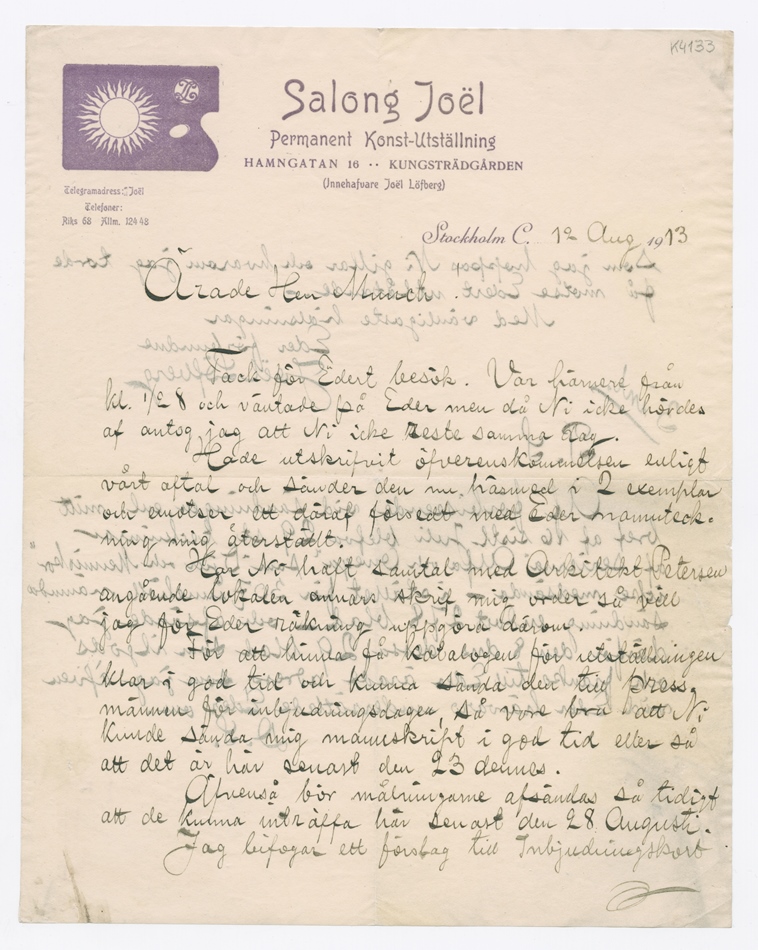 K4133
Salong Joël
Permanent Konst-Utställning
HAMNGATAN 16 ·· KUNGSTRÄDGÅRDEN
(Innehafvare Joël Löfberg)
Telegramadress: Joël
Telefoner:
Riks 68 Allm. 124 48
Stockholm C. 12 Aug 1913
Ärade Herr Munch.
Tack för Edert besök. Var härnere från
kl. 1/2 8 och väntade på Eder men då Ni icke hördes
af antog jag att Ni icke reste samma dag.
Hade utskrifvit öfverenskommelsen enligt
vårt aftal och sänder den nu härmed i 2 exemplar
och emotser ett däraf försedt med Eder namnteck-
ning mig återställt.
Har Ni haft samtal med Arkitekt Petersen
angående lokalen annars skrif mig order så vill
jag för Eder räkning uppgöra därom.
För att hinna få katalogen för utställningen
klar i god tid och kunna sända den till press-
männen för inbjudningsdagen, så vore bra att Ni
kunde sända mig manuskript i god tid eller så
att det är här senast den 23 dennes.
Äfvenså bör målningarne afsändas så tidigt
att de kunna inträffa här senast den 28 Augusti.
Jag bifogar ett förslag till Inbjudningskort